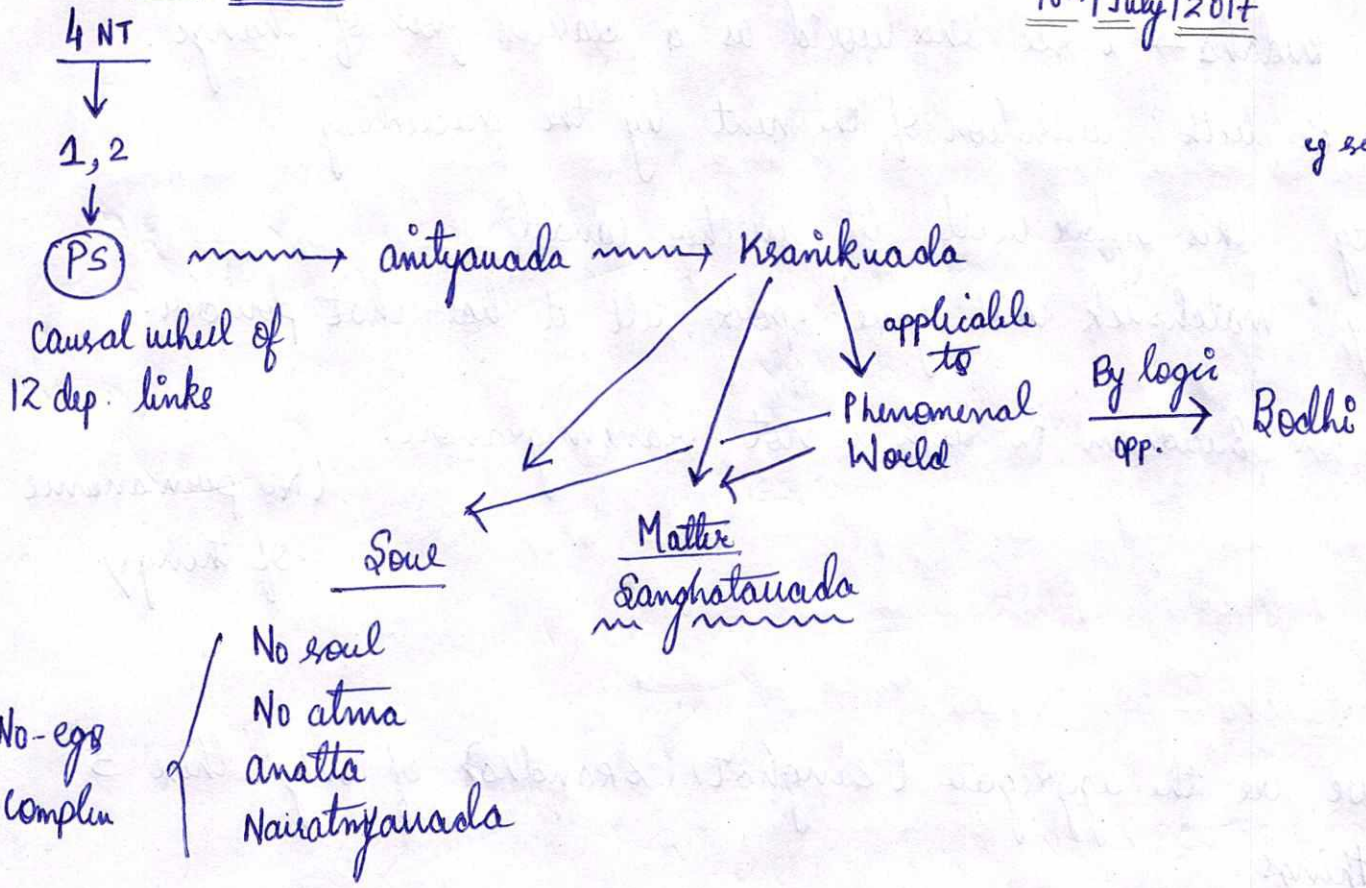 July/2017
4 NT
1, 2
PS
anityavada
Ksanikvada
Causal wheel of
12 dep. links
applicable
to
Phenomenal
World
By logic
opp.
Bodhi
Soul
Matter
Sanghatavada
No soul
No atma
anatta
Nairatmyavada
No-ego
Complex